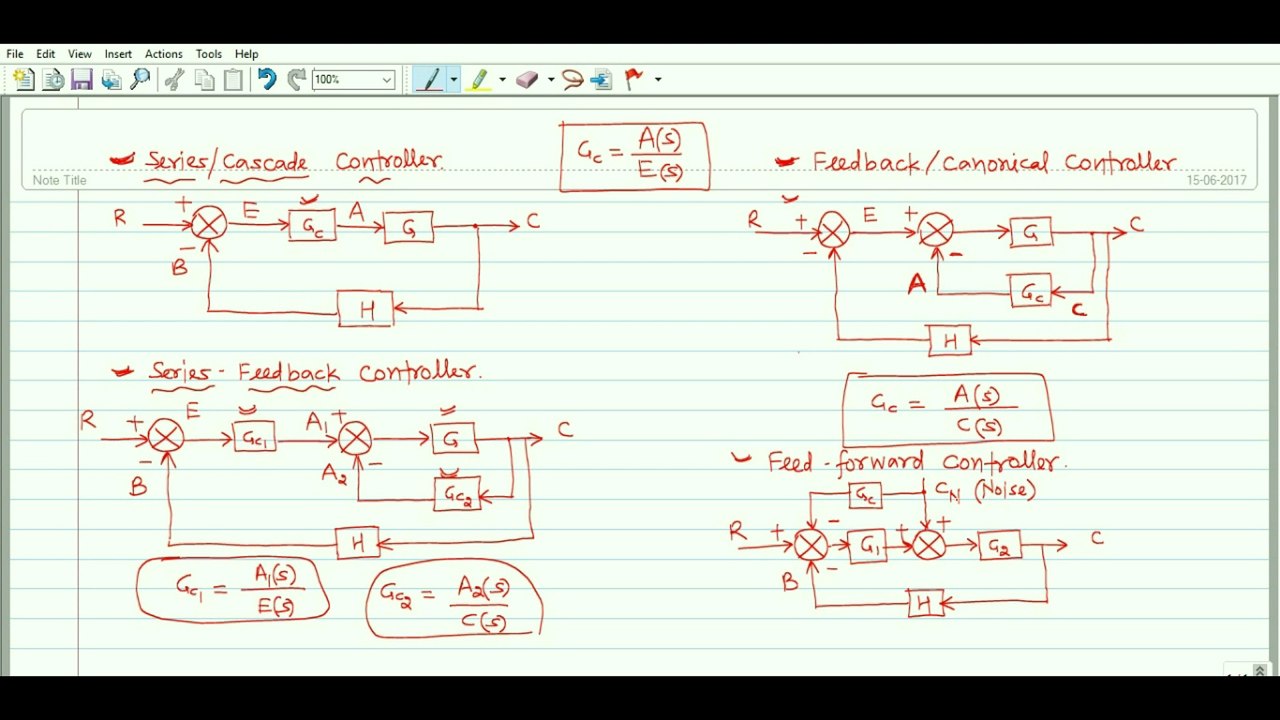 File Edit View Insert Actions Tools Help
100%
Note Title
15-06-2017
Series/Cascade Controller.
Gc = A(s)/E(s)
R + E Gc A G C
−
B
H
Feedback/Canonical Controller
R + E + G C
− −
A Gc C
H
Gc = A(s)/C(s)
Series-Feedback Controller.
R + E Gc1 A1 + G C
− −
B A2 Gc2
H
Gc1 = A1(s)/E(s)
Gc2 = A2(s)/C(s)
Feed-forward Controller.
Gc CN (Noise)
R + − G1 + + G2 C
−
B
H